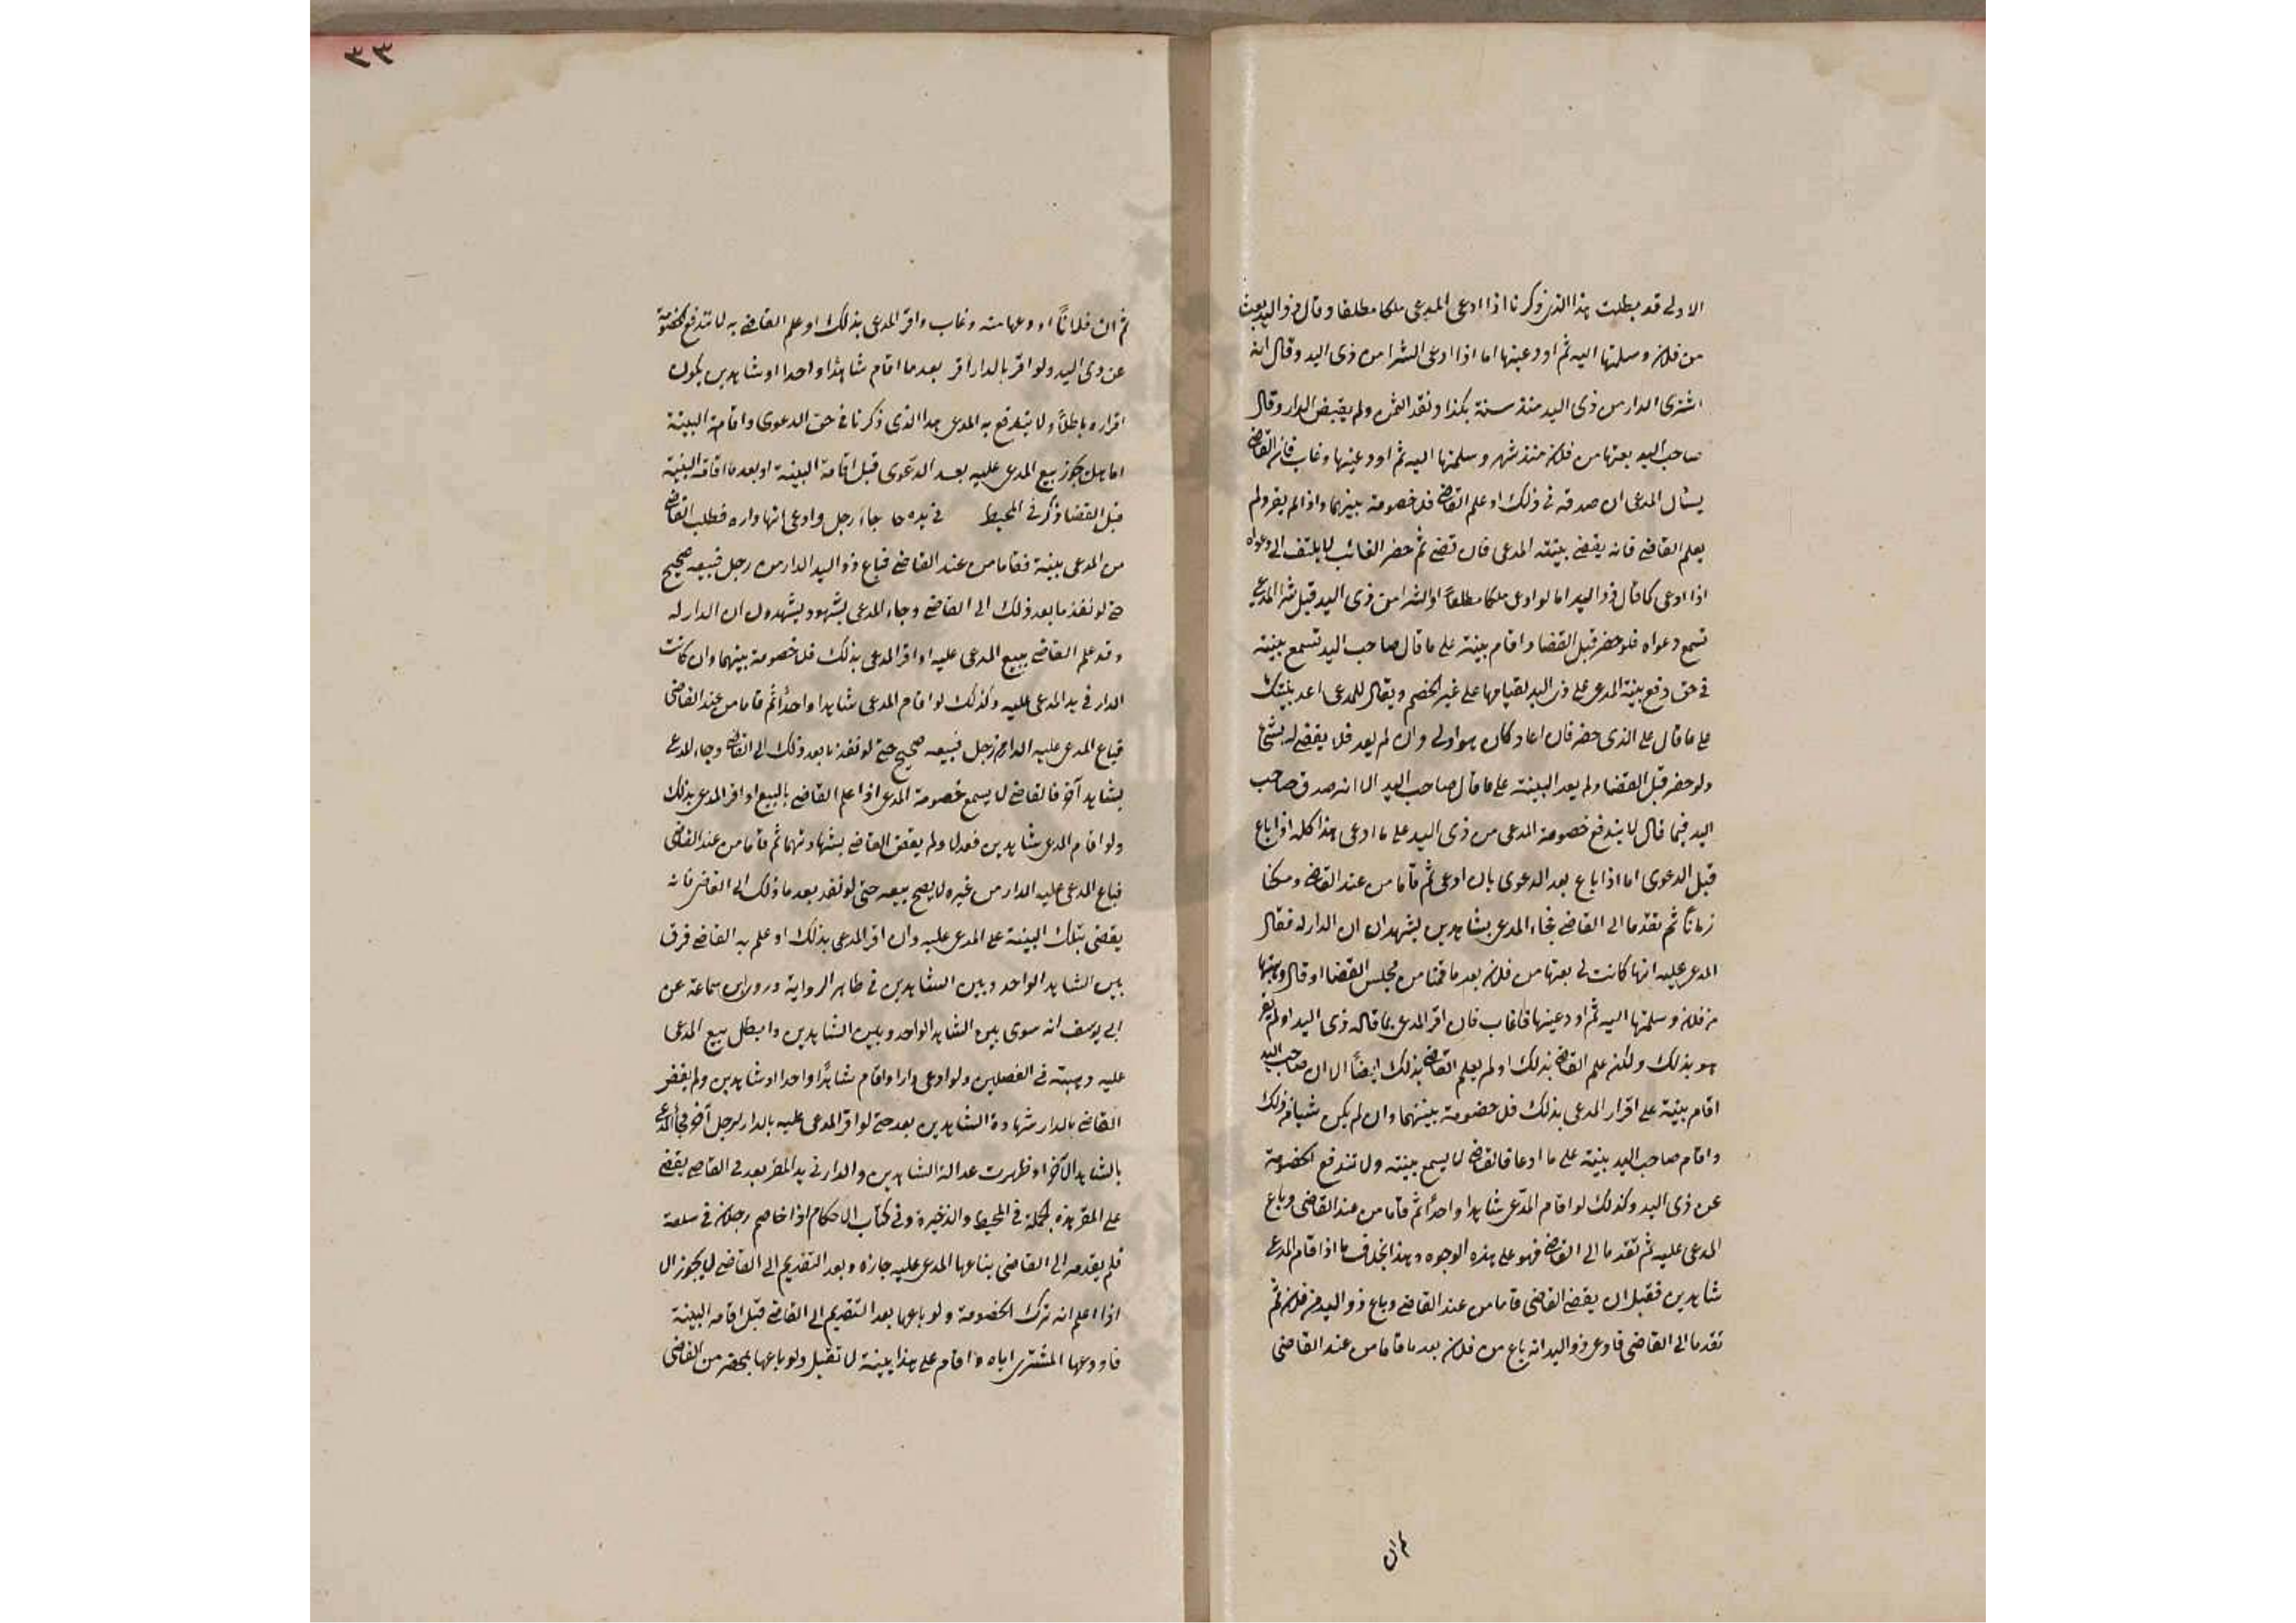 الاولى قد بطلت هذا الذى ذكرنا اذا ادعى المدعى ملكا مطلقا وقال ذو اليد بعت
من فلان وسلمتها اليه ثم اودعنيها اما اذا ادعى الشرا من ذى اليد وقال انه
اشترى الدار من ذى اليد منذ سنة بكذا ونقد الثمن ولم يقبض الدار وقال
صاحب اليد بعتها من فلان منذ شهر وسلمتها اليه ثم اودعنيها وغاب فان القاضى
يسال المدعى ان صدقه فى ذلك او علم القاضى فلا خصومة بينهما واذا لم يقر ولم
يعلم القاضى فانه يقضى ببينة المدعى فان قضى ثم حضر الغائب لا يلتفت الى دعواه
اذا ادعى كما قال ذو اليد اما لو ادعى ملكا مطلقاً او الشرا من ذى اليد قبل شرا المدعى
تسمع دعواه فلو حضر قبل القضا واقام بينة على ما قال صاحب اليد تسمع بينته
فى حق دفع بينة المدعى على ذى اليد لقيامها على غير الخصم ويقال للمدعى اعد بينتك
على ما قال على الذى حضر فان اعاد كان هو اولى وان لم يعد فلا يقضى له بشئ
ولو حضر قبل القضا ولم يعد البينة على ما قال صاحب اليد الا انه صدق صاحب
اليد فيما قال لا يندفع خصومة المدعى من ذى اليد على ما ادعى هذا كله اذا باع
قبل الدعوى اما اذا باع بعد الدعوى بان ادعى ثم قاما من عند القاضى ومكثا
زماناً ثم تقدما الى القاضى فجاء المدعى بشاهدين يشهدان ان الدار له فقال
المدعى عليه انها كانت لى بعتها من فلان بعد ما قمنا من مجلس القضا او قال وهبتها
من فلان وسلمتها اليه ثم اودعنيها فغاب فان اقر المدعى بما قاله ذى اليد او لم يقر
هو بذلك ولكن علم القاضى بذلك او لم يعلم القاضى بذلك ايضاً الا ان صاحب اليد
اقام بينة على اقرار المدعى بذلك فلا خصومة بينهما وان لم يكن شيا من ذلك
واقام صاحب اليد بينة على ما ادعا فالقاضى لا يسمع بينته ولا تندفع الخصومة
عن ذى اليد وكذلك لو اقام المدّعى شاهدا واحداً ثم قاما من عند القاضى وباع
المدعى عليه ثم تقدما الى القاضى فهو على هذه الوجوه وهذا بخلاف ما اذا اقام المدعى
شاهدين فقبل ان يقضى القاضى قاما من عند القاضى وباع ذو اليد من فلان ثم
تقدما الى القاضى فادعى ذو اليد انه باع من فلان بعد ما قاما من عند القاضى
ثم ان
٣٣
ثم ان فلاناً اودعها منه وغاب واقر المدعى بذلك او علم القاضى به لا تندفع الخصومة
عن ذى اليد ولو اقر بالدار لآخر بعد ما اقام شاهدا واحدا او شاهدين يكون
اقراره باطلاً ولا يندفع به المدعى هذا الذى ذكرنا فى حق الدعوى واقامة البينة
اما هل يجوز بيع المدعى عليه بعد الدّعوى قبل اقامة البينة او بعد ما اقامة البينة
قبل القضا ذكر فى المحيط فى يده جاء رجل وادعى انها داره فطلب القاضى
من المدعى بينة فقاما من عند القاضى فباع ذو اليد الدار من رجل فبيعه صحيح
حتى لو تقدما بعد ذلك الى القاضى وجاء المدعى بشهود يشهدون ان الدار له
وقد علم القاضى ببيع المدعى عليه او اقر المدعى بذلك فلا خصومة بينهما وان كانت
الدار فى يد المدعى عليه وكذلك لو اقام المدعى شاهدا واحداً ثم قاما من عند القاضى
فباع المدعى عليه الدار من رجل فبيعه صحيح حتى لو تقدما بعد ذلك الى القاضى وجاء المدعى
بشاهد آخر فالقاضى لا يسمع خصومة المدعى اذا علم القاضى بالبيع او اقر المدعى بذلك
ولو اقام المدعى شاهدين فعدلا ولم يقض القاضى بشهادتهما ثم قاما من عند القاضى
فباع المدعى عليه الدار من غيره لا يصح بيعه حتى لو تقدما بعد ذلك الى القاضى فانه
يقضى بتلك البينة على المدعى عليه وان اقر المدعى بذلك او علم به القاضى فرق
بين الشاهد الواحد وبين الشاهدين فى ظاهر الرواية وروى ابن سماعة عن
ابى يوسف انه سوى بين الشاهد الواحد وبين الشاهدين وابطل بيع المدعى
عليه وهبته فى الفصلين ولو ادعى دارا واقام شاهدًا واحدا او شاهدين ولم يقض
القاضى بالدار شهادة الشاهدين بعد حتى لو اقر المدعى عليه بالدار لرجل آخر فجاء المدعى
بالشاهد الآخر او ظهرت عدالة الشاهدين والدار فى يد المقر بعد فى القاضى يقضى
على المقر هذه الجملة فى المحيط والذخيرة وفى كتاب الاحكام اذا خاصم رجلا فى سلعة
فلم يقدمه الى القاضى بباعها المدعى عليه جازه وبعد التقديم الى القاضى لا يجوز الا
اذا اعلم انه ترك الخصومة ولو باعها بعد التقديم الى القاضى قبل اقامة البينة
فاودعها المشترى اياه واقام على هذا بينة لا تقبل ولو باعها بمحضر من القاضى